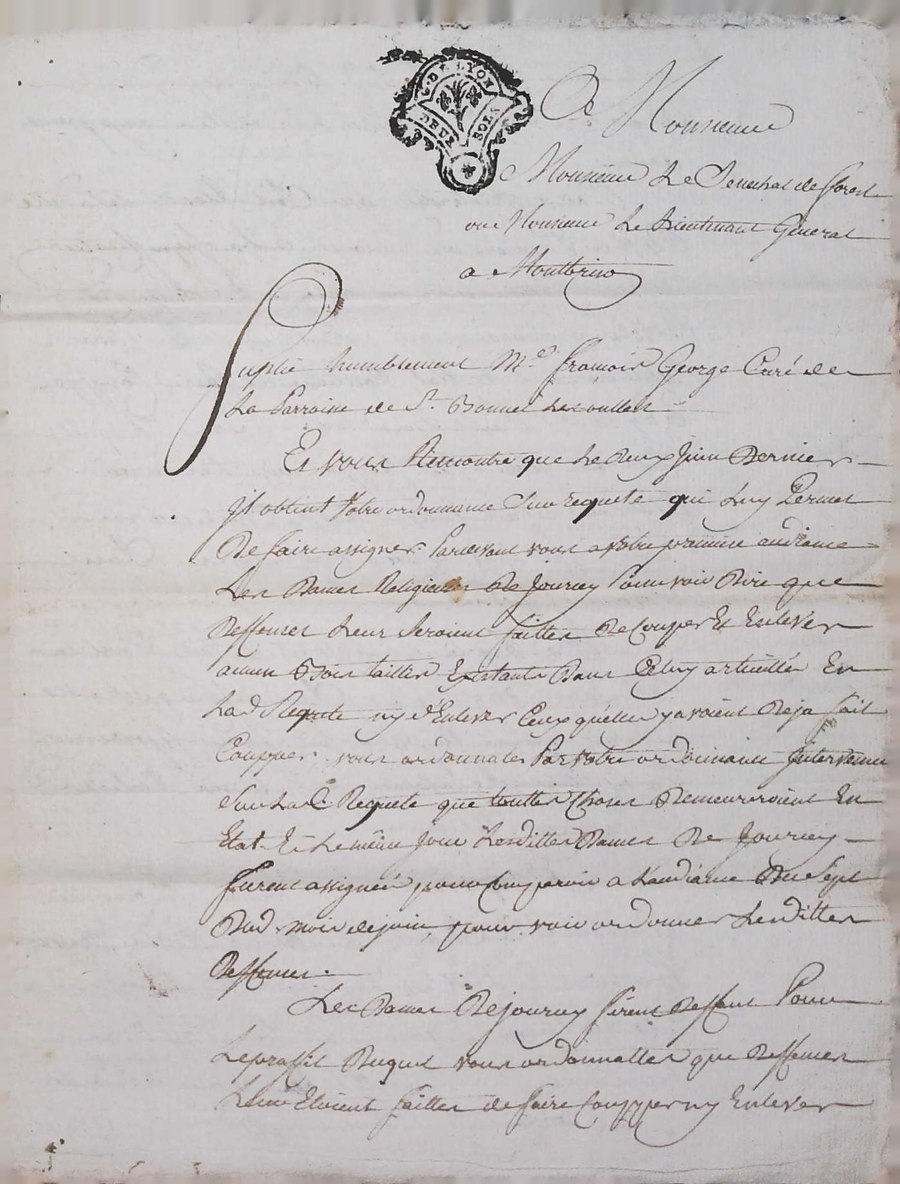 G. DE LYON
DEUX SOLS
A Monsieur
Monsieur Le Senechal de forest
ou Monsieur Le Lieutenant Général
a Montbrison
Suplie humblement Mre françois George Curé de
La Parroisse de St. Bonnet Les oulles
Et vous Remontre que Le deux Juin Dernier
Jl obtint Votre ordonnance Sur requete qui Luy Permet
De faire assigner Pardevant vous a votre premiere audiance
Les Dames Religieuses De Jourcey Pour voir Dire que
Deffenses Leur Seroient faittes De Couper Et Enlever
aucun Bois taillis Existants Dans Celuy articullé En
Lad Requete ny d'Enlever Ceux quelles y avoient Deja fait
Coupper. vous ordonnates Par votre ordonnance Intervenue
Sur La de Requete que touttes Choses Demeureroient En
Etat. Et Le même Jour Lesdittes Dames De Jourcey
furent assignées pour Comparoir a L'audiance Du Sept
Dud. mois de juin pour voir ordonner Lesdittes
Deffenses.
Les Dames De jourcey firent Deffaut Pour
Le proffit Duquel vous ordonnattes que Deffenses
Leur Etoient faittes de faire Coupper ny Enlever